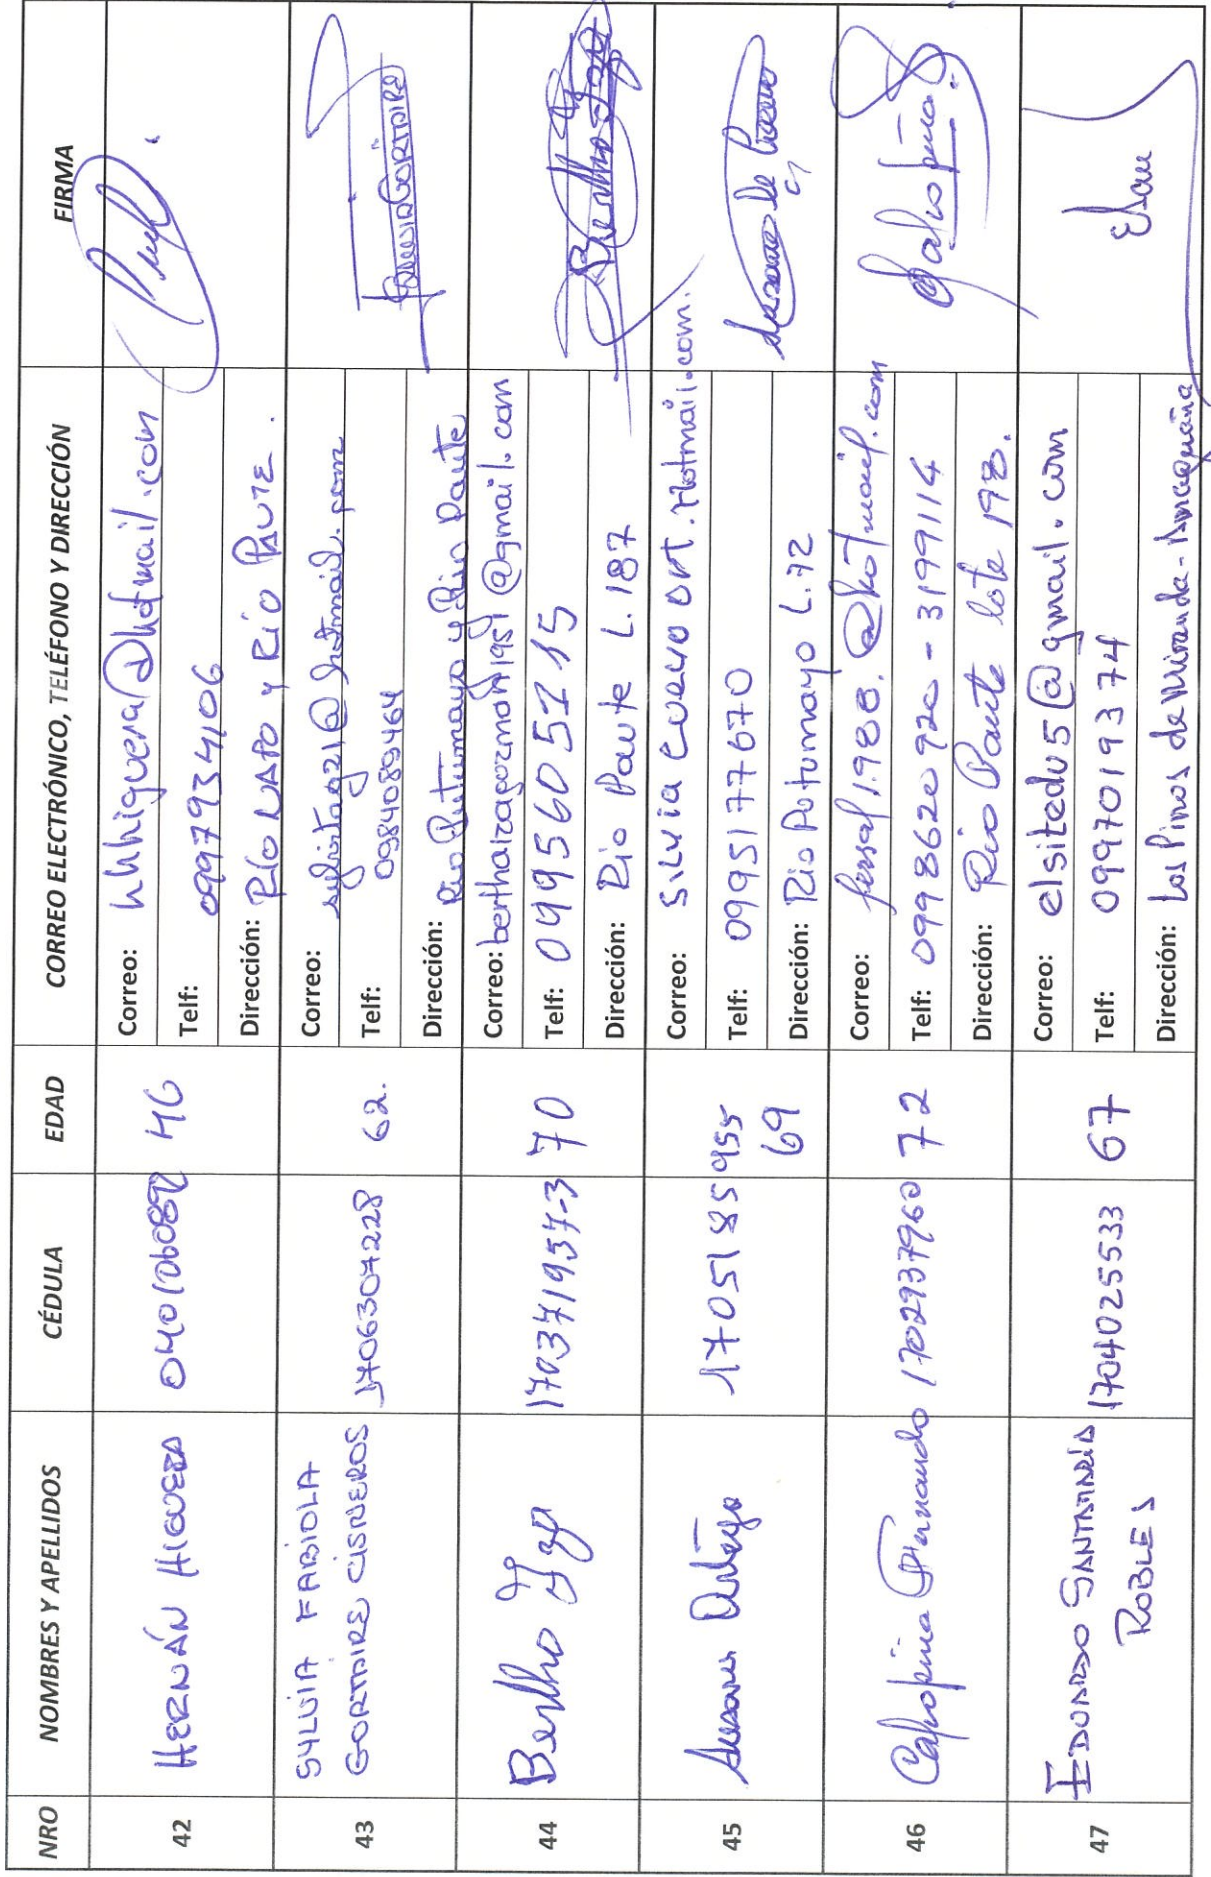 NRO NOMBRES Y APELLIDOS CÉDULA EDAD CORREO ELECTRÓNICO, TELÉFONO Y DIRECCIÓN FIRMA
42 HERNÁN HIGUERA 46
Correo: hhhiguera@hotmail.com
Telf: 0997934106
Dirección: RÍO NAPO Y RÍO PAUTE.
43 SYLVIA FABIOLA
GORTAIRE CISNEROS
1706307228 62.
Correo:
Telf: 0984089464
Dirección: Rio Putumayo y Rio Paute
44 Bertha 170371957-3 70
Correo: @gmail.com
Telf: 0995605215
Dirección: Rio Paute L. 187
45 Susana 1705185955
69
Correo: Silvia
Telf: 0995177670
Dirección: Rio Putumayo L. 72
46 Calvopiña Fernando 1702937960 72
Correo: fersal1988.@hotmail.com
Telf: 0998620920 - 3199114
Dirección: Rio Paute lote 198.
47 EDUARDO SANTAMARÍA
ROBLES
1704025533 67
Correo: elsitedu5@gmail.com
Telf: 0997019374
Dirección: Los Pinos de Miranda - Amaguaña